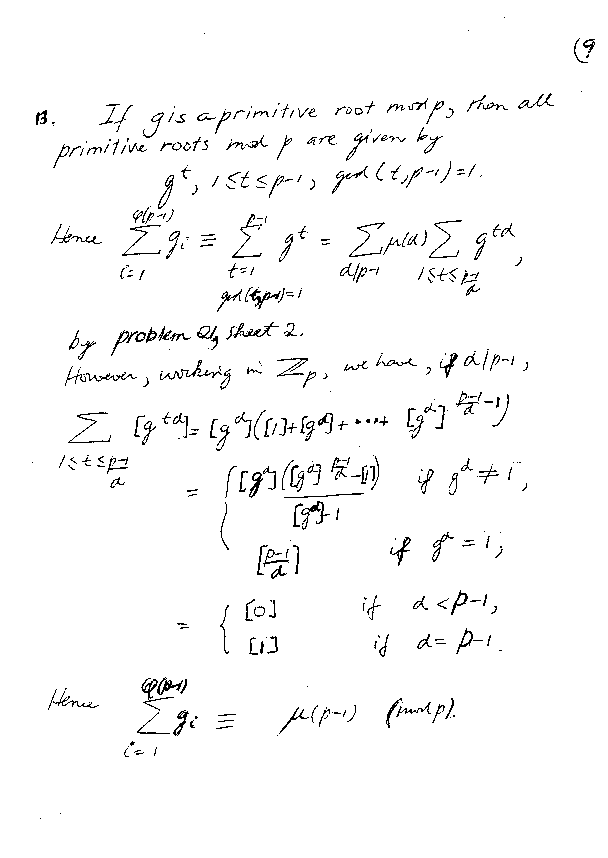 (9
13. If g is a primitive root mod p, then all
primitive roots mod p are given by
g^t, 1≤t≤p-1, gcd(t,p-1)=1.
Hence ∑_{i=1}^{φ(p-1)} g_i ≡ ∑_{t=1, gcd(t,p-1)=1}^{p-1} g^t = ∑_{d|p-1} μ(d) ∑_{1≤t≤(p-1)/d} g^{td},
by problem 2, sheet 2.
However, working in ℤ_p, we have, if d|p-1,
∑_{1≤t≤(p-1)/d} [g^{td}] = [g^d]([1]+[g^d]+⋯+[g^d]^{(p-1)/d -1})
= { [g^d]([g^d]^{(p-1)/d}-[1]) / [g^d]-1 if g^d ≠ 1,
[(p-1)/d] if g^d = 1,
= { [0] if d<p-1,
[1] if d=p-1.
Hence ∑_{i=1}^{φ(p-1)} g_i ≡ μ(p-1) (mod p).